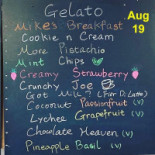 Gelato
Aug
19
Mike's Breakfast
Cookie n Cream
More Pistachio
Mint Chips
Creamy Strawberry
Crunchy Joe
Got Milk? (Fior Di Latte)
Coconut Passionfruit (v)
Lychee Grapefruit (v)
Chocolate Heaven (v)
Pineapple Basil (v)